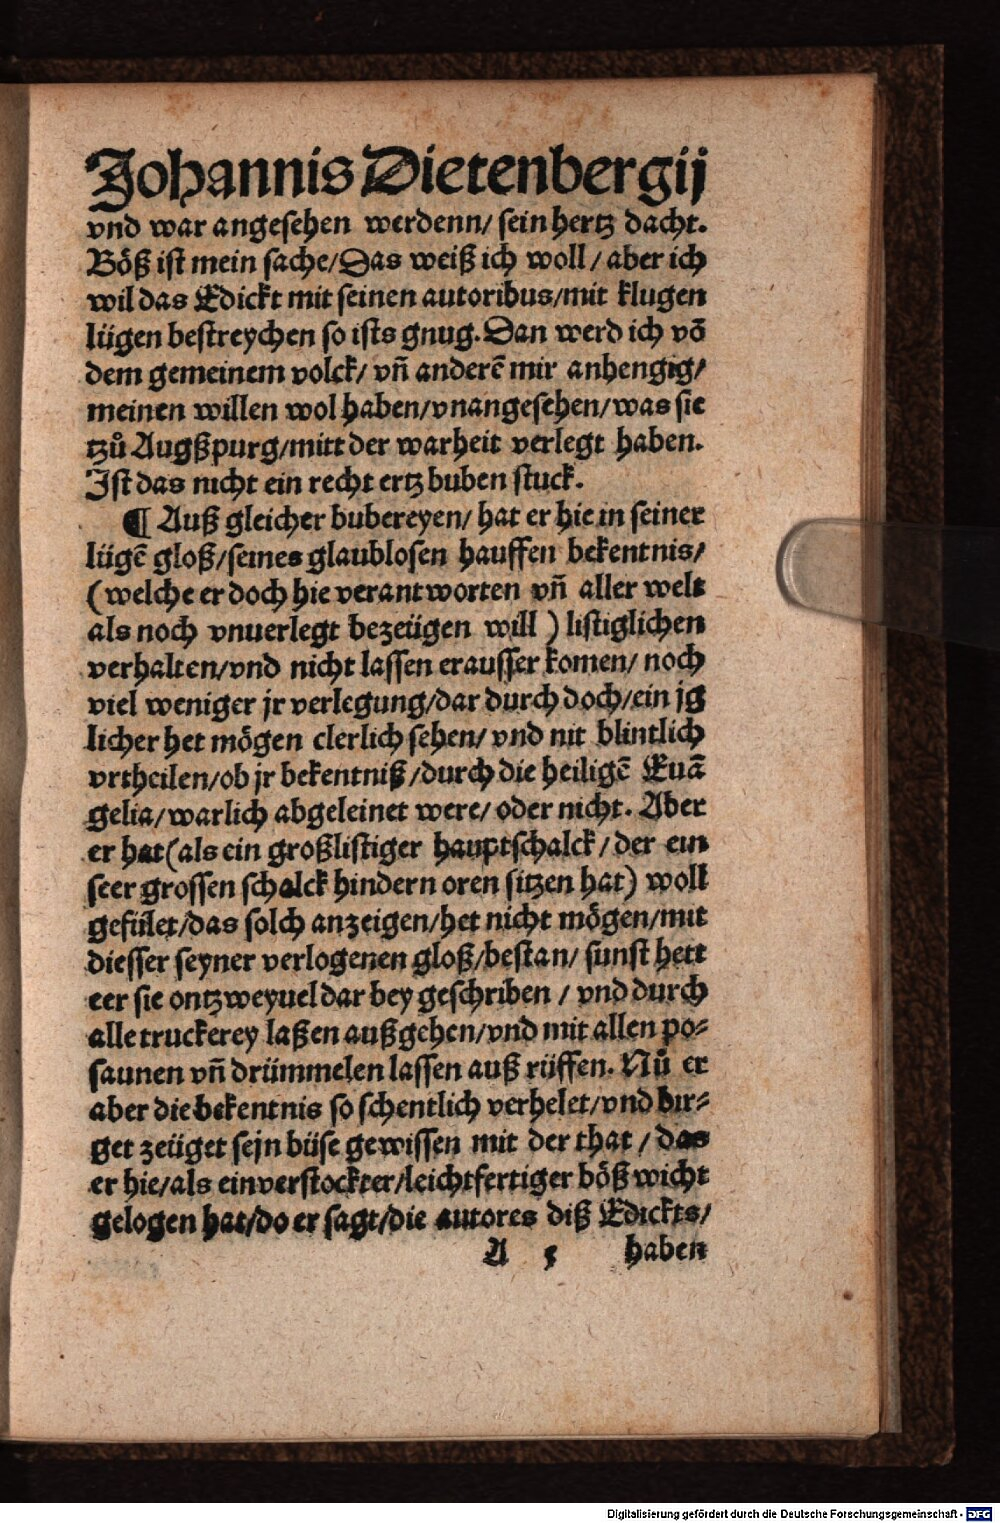 Johannis Dietenbergij
vnd war angesehen werdenn/ sein hertz dacht.
Böß ist mein sache/Das weiß ich woll/ aber ich
wil das Edickt mit seinen autoribus/mit klugen
lügen bestreychen so ists gnug. Dan werd ich võ
dem gemeinem volck/ vñ anderẽ mir anhengig/
meinen willen wol haben/vnangesehen/was sie
tzů Augßpurg/mitt der warheit verlegt haben.
Ist das nicht ein recht ertz buben stuck.
¶ Auß gleicher bubereyen/ hat er hie in seiner
lügẽ gloß/seines glaublosen hauffen bekentnis/
(welche er doch hie verantworten vñ aller welt
als noch vnuerlegt bezeügen will) listiglichen
verhalten/vnd nicht lassen erausser komen/ noch
viel weniger jr verlegung/dar durch doch/ein jg
licher het mögen clerlich sehen/ vnd nit blintlich
vrtheilen/ob jr bekentniß/durch die heiligẽ Euã
gelia/warlich abgeleinet were/ oder nicht. Aber
er hat(als ein großlistiger hauptschalck/ der ein
seer grossen schalck hindern oren sitzen hat) woll
gefület/das solch anzeigen/het nicht mögen/mit
diesser seyner verlogenen gloß/bestan/ sunst hett
eer sie ontzweyuel dar bey geschriben / vnd durch
alle truckerey laßen außgehen/vnd mit allen po⸗
saunen vñ drümmelen lassen auß rüffen. Nů er
aber die bekentnis so schentlich verhelet/vnd bir⸗
get zeüget sejn büse gewissen mit der that / das
er hie/als ein verstockter/leichtfertiger böß wicht
gelogen hat/do er sagt/die autores diß Edickts/
A 5 haben
Digitalisierung gefördert durch die Deutsche Forschungsgemeinschaft - DFG